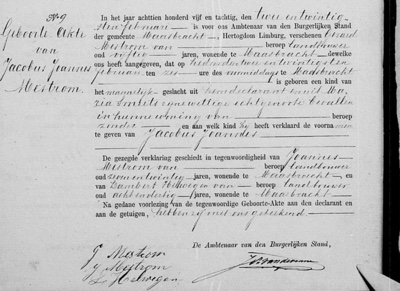 No 9
Geboorte Akte
van
Jacobus Joannes
Mestrom
In het jaar achttien honderd vijf en tachtig, den twee en twintig
sten Februari is voor ons Ambtenaar van den Burgerlijken Stand
der gemeente Maasbracht, Hertogdom Limburg, verschenen Gerard
Mestrom van beroep landbouwer
oud vijftig jaren, wonende te Maasbracht, dewelke
ons heeft aangegeven, dat op heden den twee en twintigsten
Februari ten zes ure des namiddags te Maasbracht
is geboren een kind van
het mannelijk geslacht uit hem declarant en uit Ma
ria Smeets zijne wettige echtgenoote bevallen
in hunne woning van beroep
zonder en aan welk kind hij heeft verklaard de voornamen
te geven van Jacobus Joannes
De gezegde verklaring geschiedt in tegenwoordigheid van Joannes
Mestrom van beroep landbouwer
oud jaren, wonende te Maasbracht en
van Lambert van beroep landbouwer
oud achtendertig jaren, wonende te Maasbracht
Na gedane voorlezing van de tegenwoordige Geboorte-Akte aan den declarant en
aan de getuigen, hebben zij met ons geteekend.
De Ambtenaar van den Burgerlijken Stand,
G Mestrom
J Mestrom